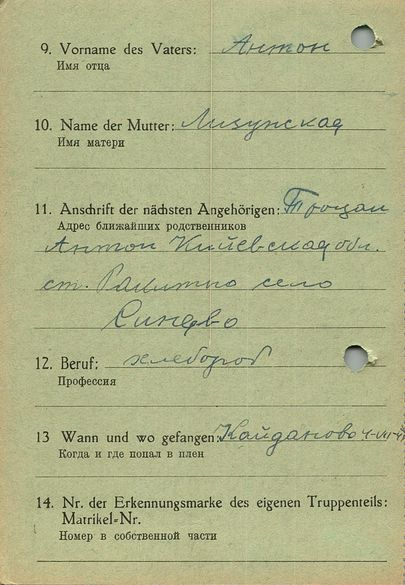 9. Vorname des Vaters: Антон
Имя отца
10. Name der Mutter: Лизунская
Имя матери
11. Anschrift der nächsten Angehörigen: Троцан
Адрес ближайших родственников
Антон Киевская обл.
ст. Ракитно село
Синево
12. Beruf: хлебороб
Профессия
13 Wann und wo gefangen: Кайданово
Когда и где попал в плен
14. Nr. der Erkennungsmarke des eigenen Truppenteils:
Matrikel-Nr.
Номер в собственной части